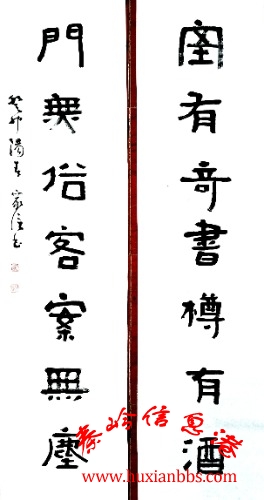 室有奇書樽有酒
門無俗客案無塵
癸卯陽春
秦岭信息港
www.huxianbbs.com